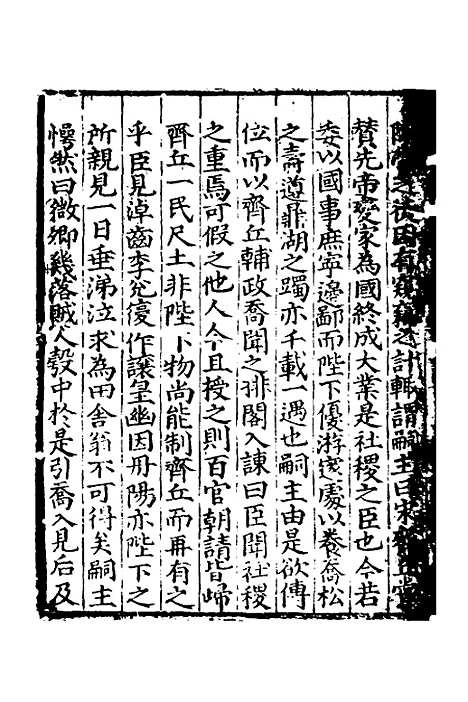 之後因有之計輒謂嗣主曰宋齊
賛先帝變家為國終成大業是社稷之臣也今若
委以國事庶寧邊鄙而陛下優游邃處以養喬松
之壽遵鼎湖之躅亦千載一遇也嗣主由是欲傳
位而以齊丘輔政喬聞之排閤入諫曰臣聞社稷
之重焉可假之他人今且授之則百官朝請皆歸
齊丘一民尺土非陛下物尚能制齊丘而再有之
乎臣見淖齒李兊復作讓皇幽因丹陽亦陛下之
所親見一日垂涕泣求為田舍翁不可得矣嗣主
愕然曰微卿幾落賊人彀中於是引喬入見后及